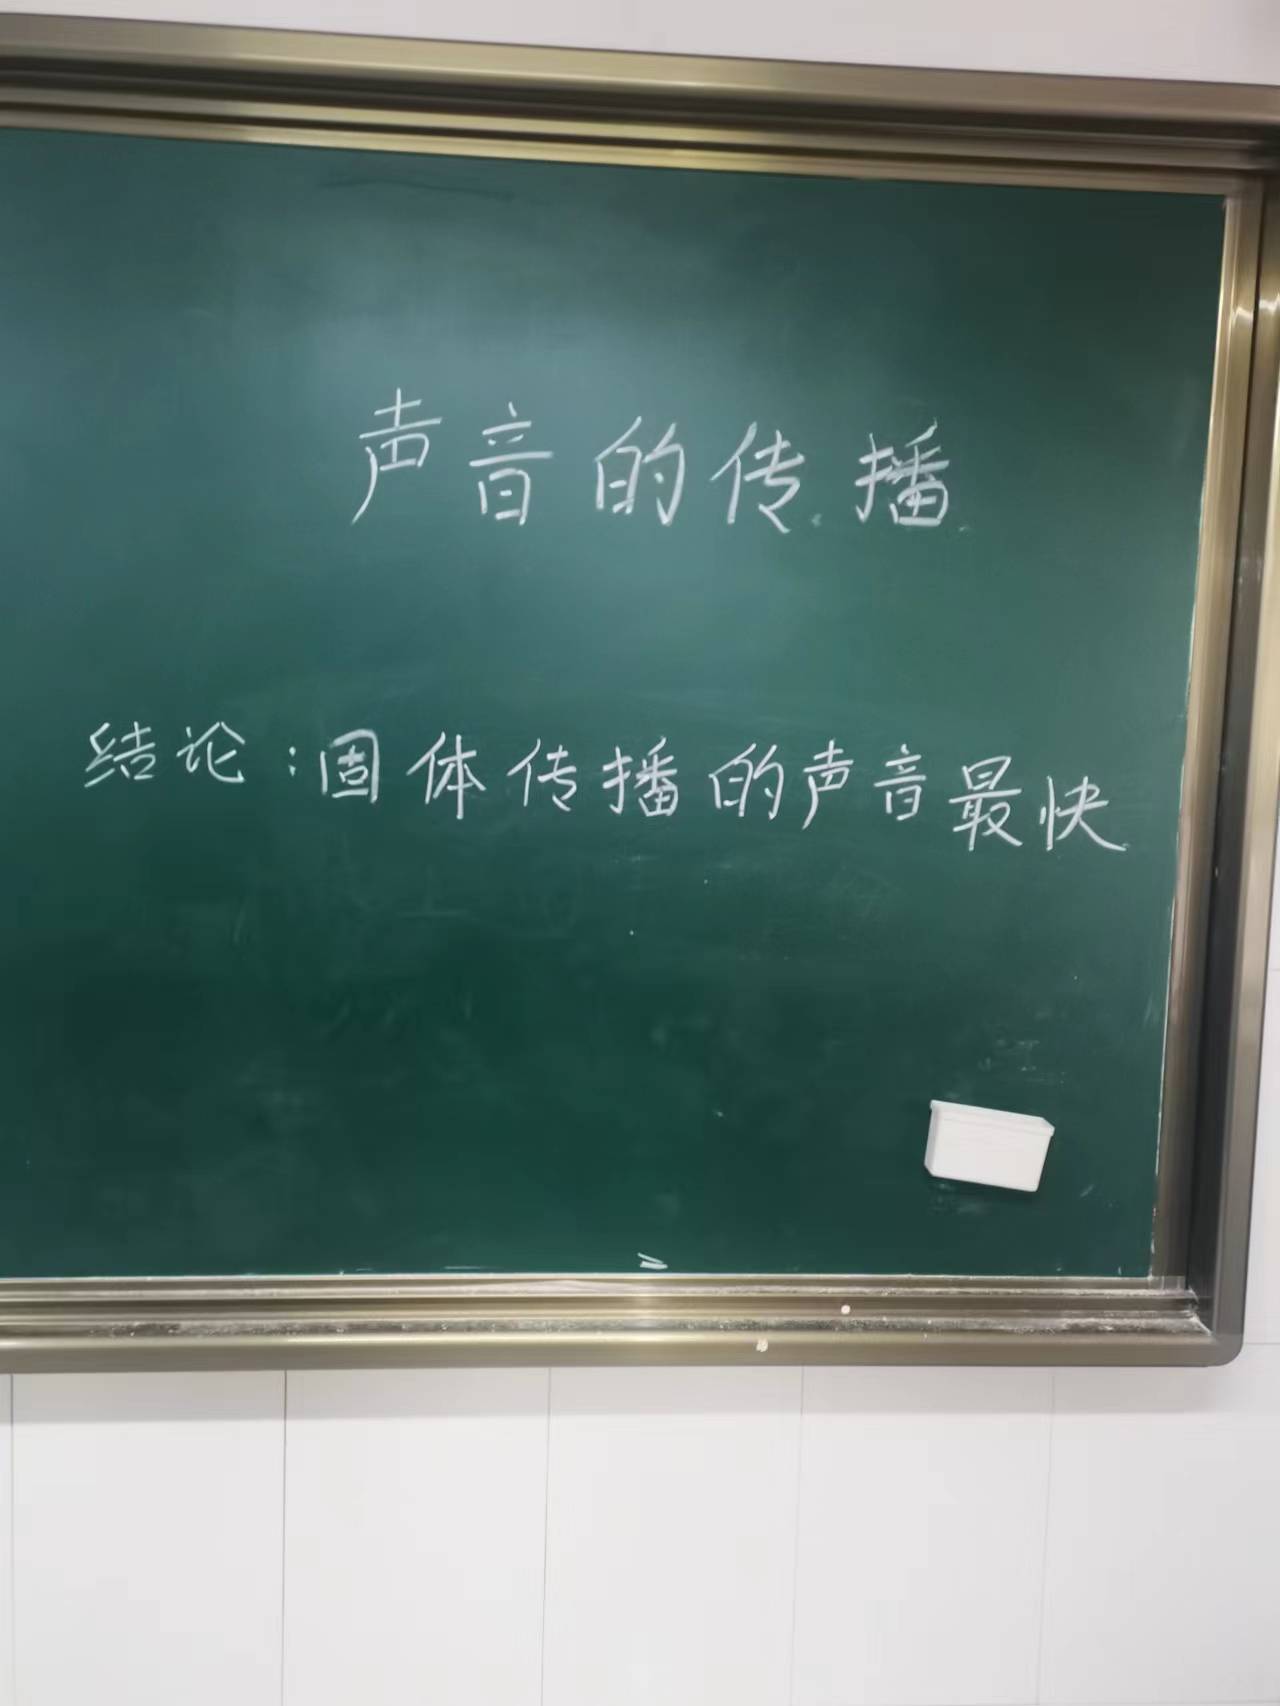 声音的传播
结论:固体传播的声音最快